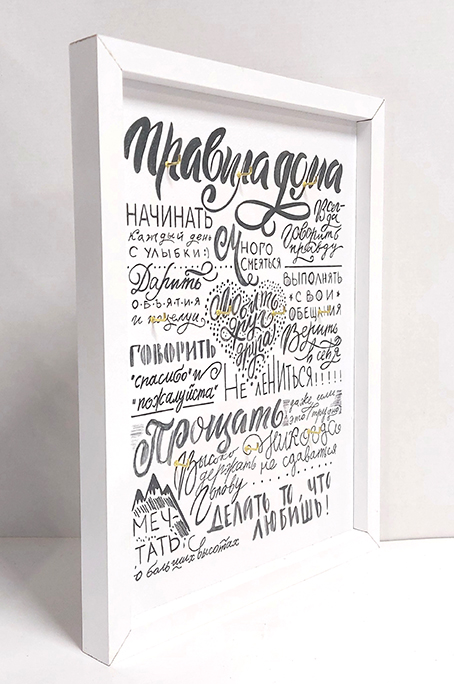 Правила дома
НАЧИНАТЬ
каждый день
С УЛЫБКИ:)
Много
СМЕЯТЬСЯ
Всег-
да
Говорить
правду
Дарить
О·Б·Ъ·Я·Т·И·Я
и поцелуи
Любить
друг
друга!
ВЫПОЛНЯТЬ
СВОИ
ОБЕЩАНИЯ
Верить
в себя
ГОВОРИТЬ
"спасибо" и
"пожалуйста"
НЕ ЛЕНИТЬСЯ!!!!!
Прощать
даже если
это трудно
Высоко
держать
голову
Никогда
не сдаваться
МЕЧ-
ТАТЬ
о больших высотах
ДЕЛАТЬ ТО, ЧТО
ЛЮБИШЬ!